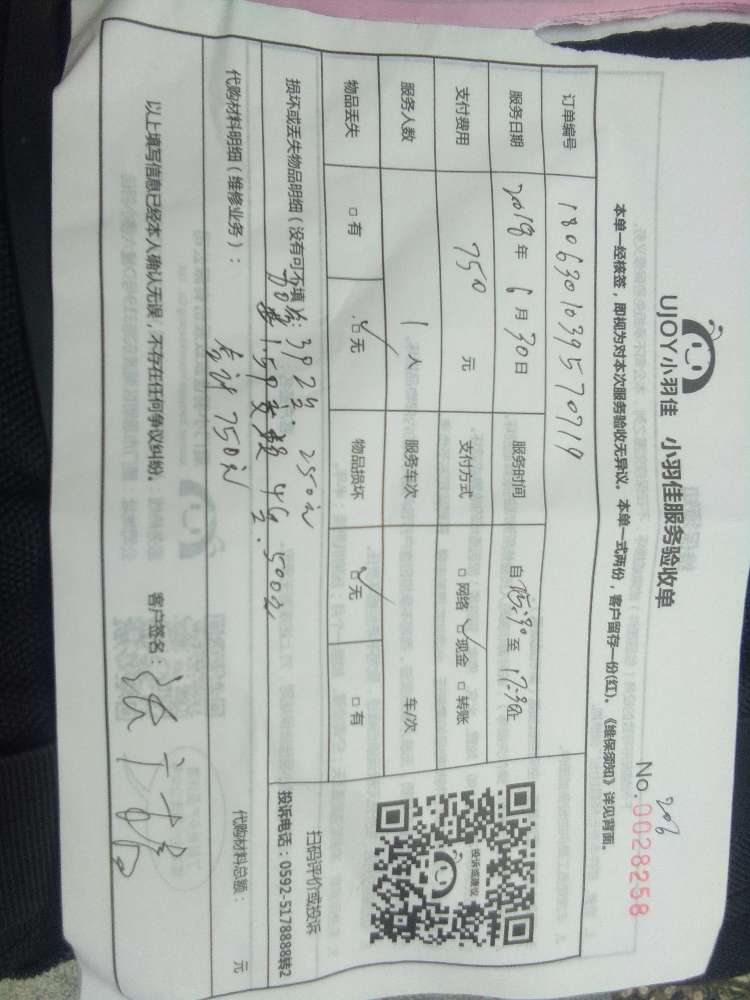 UJOY小羽佳 小羽佳服务验收单
206
No. 0028258
本单一经核签，即视为对本次服务验收无异议。 本单一式两份，客户留存一份(红)。 《维保须知》详见背面。
订单编号 1806301039570719
服务日期 2018年 6月 30日 服务时间 自 至 17:30止
支付费用 750 元 支付方式 □ 网络 ☑ 现金 □ 转账
服务人数 1 人 服务车次 车/次
物品丢失 □ 有 ☑ 无 物品损坏 ☑ 无 □ 有
投诉或建议
扫码评价或投诉
投诉电话：0592-5178888转2
损坏或丢失物品明细（没有可不填）： 3P 2台. 250元
1.5P 4台. 500元
代购材料明细（维修业务）： 合计 750元
代购材料总额： 元
以上填写信息已经本人确认无误，不存在任何争议纠纷。 客户签名：